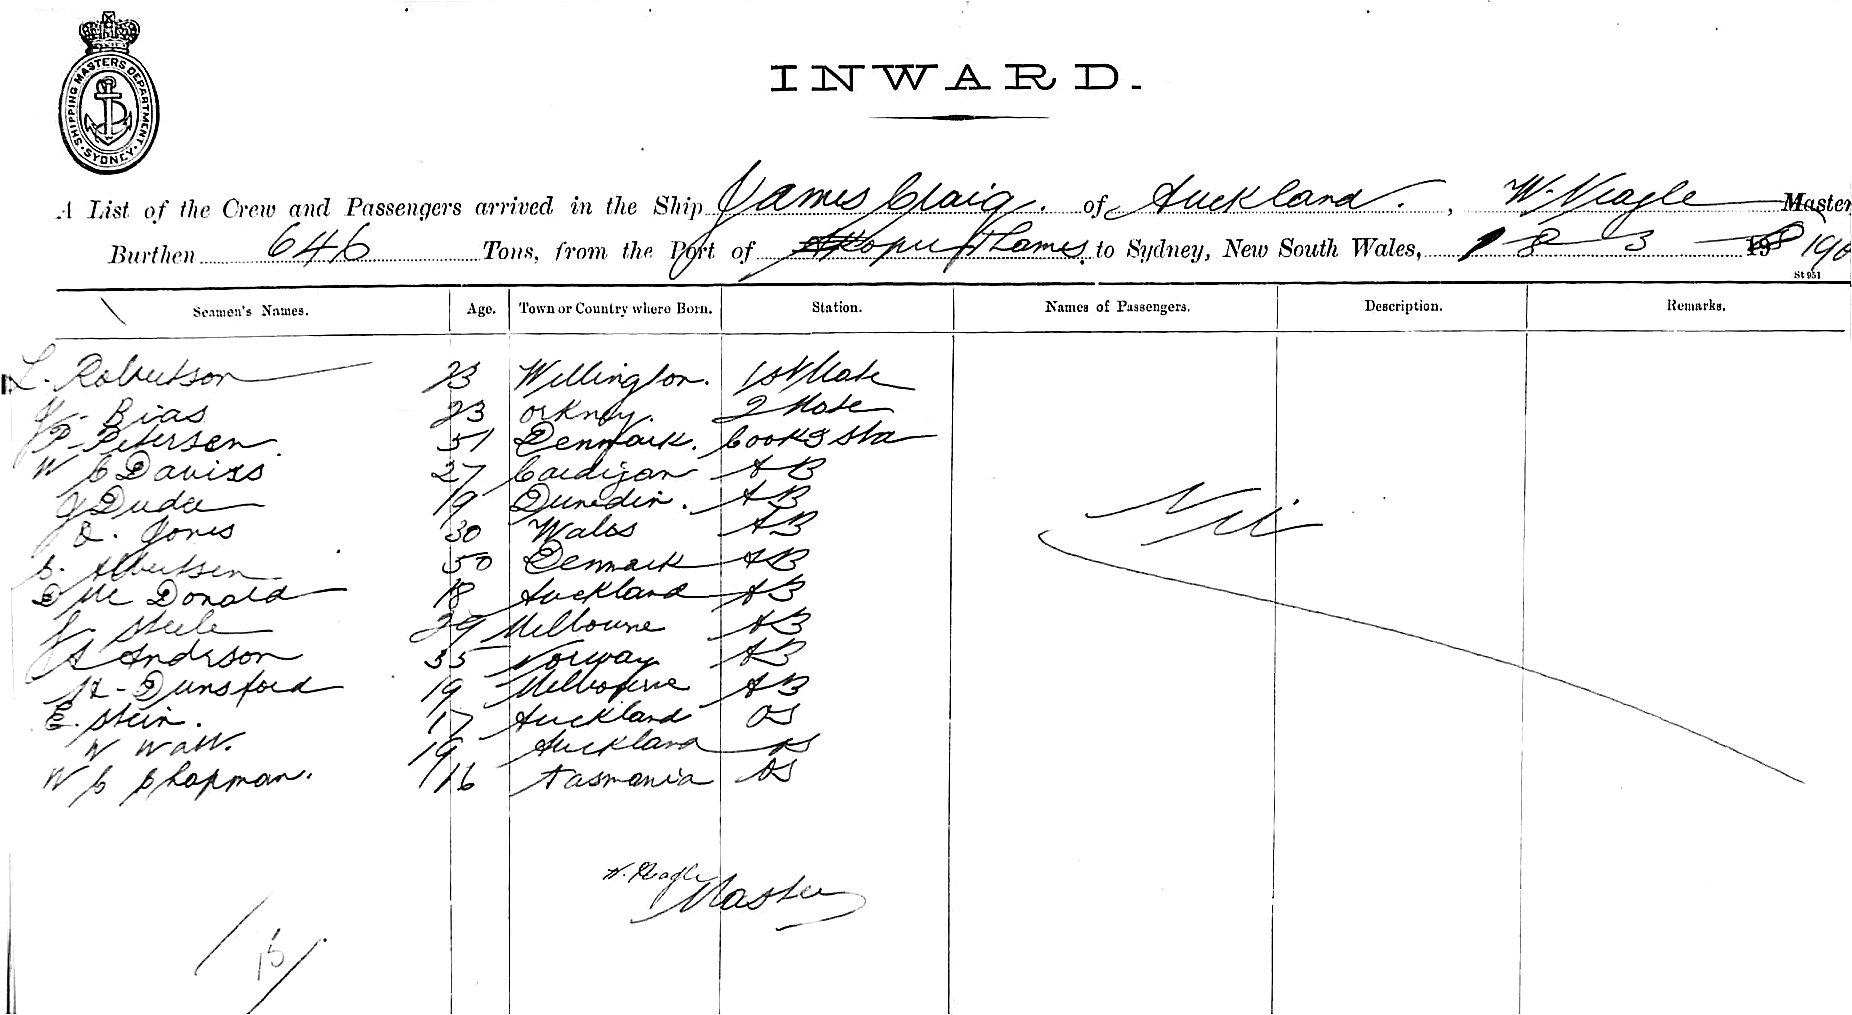 SHIPPING MASTERS DEPARTMENT. SYDNEY.
INWARD.
A List of the Crew and Passengers arrived in the Ship James Craig. of Auckland. , W. Neagle Master
Burthen 646 Tons, from the Port of Kopu Thames. to Sydney, New South Wales, 8 3 190
St 951
Seamen's Names. Age. Town or Country where Born. Station. Names of Passengers. Description. Remarks.
L. Robertson 23 Wellington. 1st Mate
J. Bias 23 Orkney. 2 Mate
P. Petersen 51 Denmark. Cook & Std
W C Daviss 27 Cardigan A B
J Duder 19 Dunedin. A B
D. Jones 30 Wales A B
Nil
C. Albertsen 50 Denmark A B
D Mc Donald 18 Auckland A B
J. Steele 29 Melbourne A B
A Anderson 35 Norway A B
H. Dunsford 19 Melbourne A B
E. Stein. 17 Auckland OS
W Watt. 19 Auckland OS
W C Chapman. 16 Tasmania OS
W. Neagle
Master
15